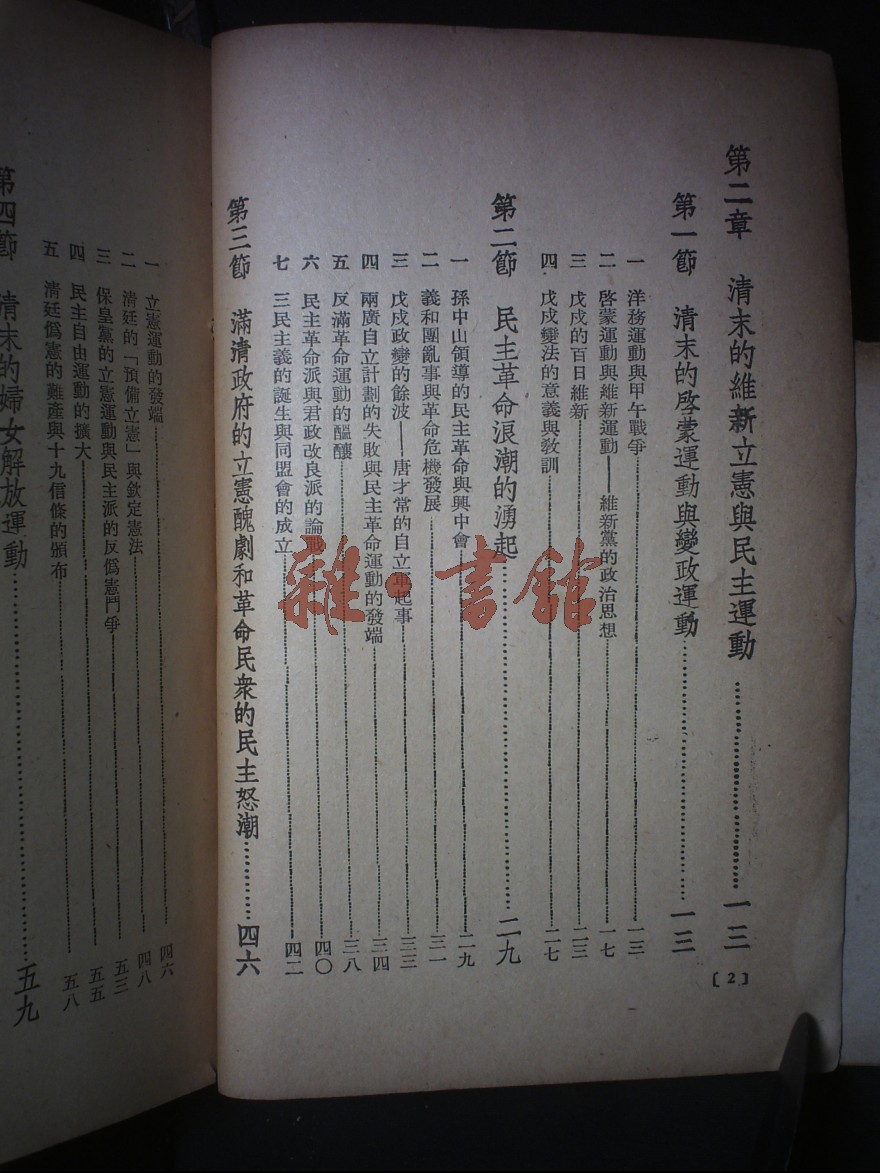 第二章 清末的維新立憲與民主運動……一三
第一節 清末的啓蒙運動與變政運動……一三
一 洋務運動與甲午戰爭……一三
二 啓蒙運動與維新運動——維新黨的政治思想……一七
三 戊戌的百日維新……二三
四 戊戌變法的意義與敎訓……二七
第二節 民主革命浪潮的湧起……二九
一 孫中山領導的民主革命與興中會……二九
二 義和團亂事與革命危機發展……三一
三 戊戌政變的餘波——唐才常的自立軍起事……三三
四 兩廣自立計劃的失敗與民主革命運動的發端……三四
五 反滿革命運動的醞釀……三八
六 民主革命派與君政改良派的論戰……四〇
七 三民主義的誕生與同盟會的成立……四二
第三節 滿清政府的立憲醜劇和革命民衆的民主怒潮……四六
〔2〕
一 立憲運動的發端……四六
二 清廷的「預備立憲」與欽定憲法……四八
三 保皇黨的立憲運動與民主派的反僞憲鬥爭……五三
四 民主自由運動的擴大……五五
五 清廷僞憲的難產與十九信條的頒布……五八
第四節 清末的婦女解放運動……五九
雜·書館